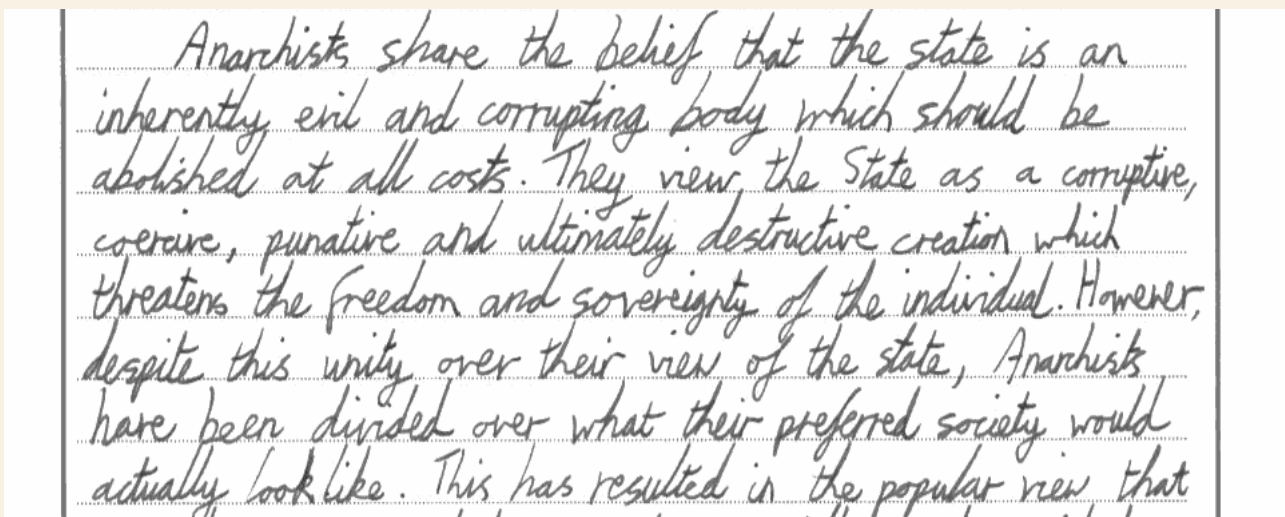 Anarchists share the belief that the state is an
inherently evil and corrupting body which should be
abolished at all costs. They view the State as a corruptive,
coercive, punative and ultimately destructive creation which
threatens the freedom and sovereignty of the individual. However,
despite this unity over their view of the state, Anarchists
have been divided over what their preferred society would
actually look like. This has resulted in the popular view that